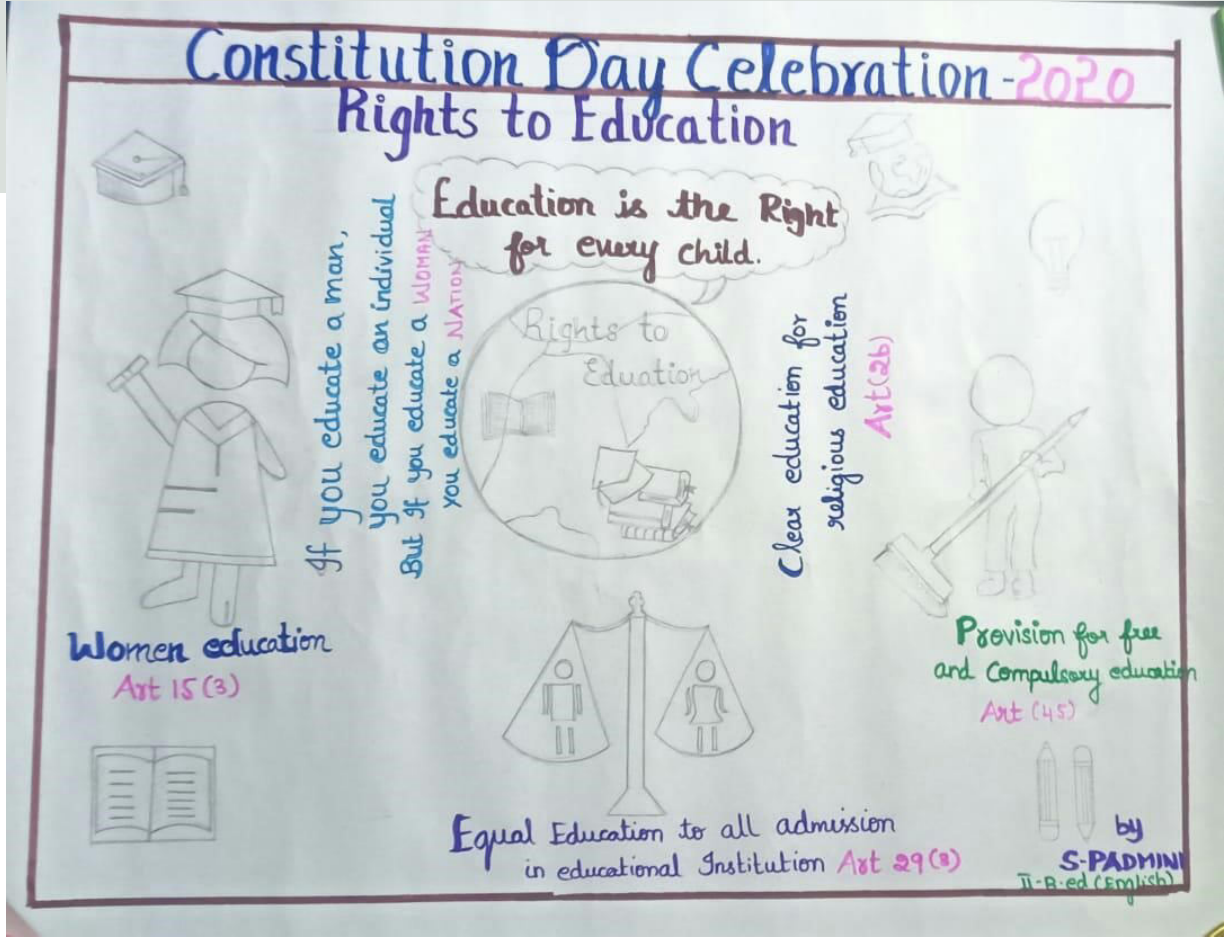 Constitution Day Celebration-2020
Rights to Education
Education is the Right
for every child.
If you educate a man,
you educate an individual
But If you educate a WOMAN
you educate a NATION
Rights to
Eduation
Clear education for
religious education
Art(26)
Women education
Art 15(3)
Provision for free
and Compulsory education
Art (45)
Equal Education to all admission
in educational Institution Art 29(2)
by
S-PADMINI
II-B.ed (English)